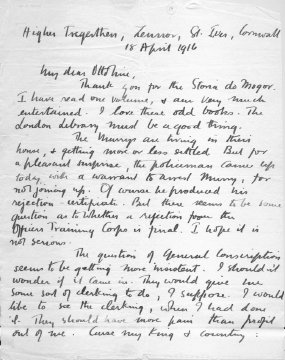 Higher Tregerthen, Zennor, St. Ives, Cornwall
18 April 1916
My dear Ottoline,
Thank you for the Storia do Mogor.
I have read one volume, & am very much
entertained. I love these odd books. The
London Library must be a good thing.
The Murrys are living in their
house, & getting more or less settled. But for
a pleasant surprise, the policeman came up
today with a warrant to arrest Murry, for
not joining up. Of course he produced his
rejection certificate. But there seems to be some
question as to whether a rejection from the
Officers Training Corps is final. I hope it is
not serious.
The question of General Conscription
seems to be getting more insistent. I shouldn't
wonder if it came in. They would give me
some sort of clerking to do, I suppose. I would
like to see the clerking, when I had done
it. They should have more pain than profit
out of me. 'Cause my king & country: